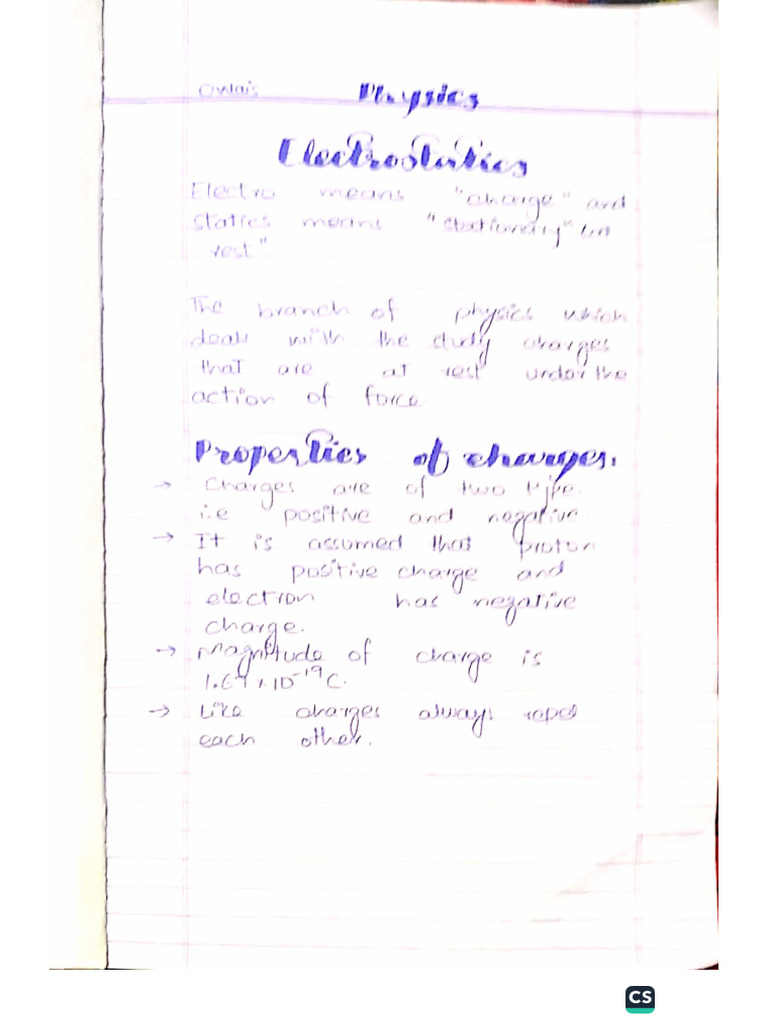 Owais Physics
Electrostatics
Electro means "charge" and
statics means "stationary" (in
rest".
The branch of physics which
deals with the study charges
that are at rest under the
action of force
Properties of charges.
→ Charges are of two type.
i.e positive and negative
→ It is assumed that proton
has positive charge and
electron has negative
charge.
→ Magnitude of charge is
→ Like charges always repel
each other.
CS